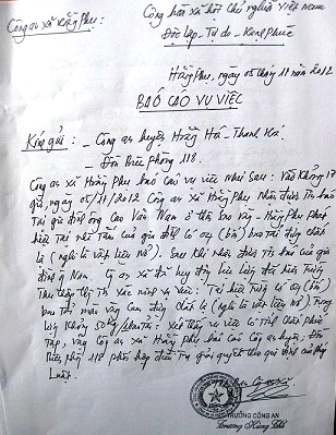 Công an xã Hoằng Phụ: Cộng hòa xã hội chủ nghĩa Việt Nam
Độc lập - Tự do - Hạnh Phúc
Hoằng Phụ, ngày 05 tháng 11 năm 2012
BÁO CÁO VỤ VIỆC
Kính gửi: - Công an huyện Hoằng Hóa - Thanh Hóa.
- Đồn Biên Phòng 118.
Công an xã Hoằng Phụ báo cáo vụ việc như sau: Vào Khoảng 17
giờ, ngày 05/11/2012 Công an xã Hoằng Phụ Nhận được Tin báo
Tại gia đình ông Cao Văn Nam ở thôn Sao vàng - Hoằng Phụ phát
hiện Tại của gia đình có (bốn) bao Tải đựng chất
lạ (nghi là vật liệu nổ). Sau khi nhận được Tin báo của gia
đình ông Nam. Công an xã đã huy động lực lượng đến hiện Trường
Thu thập Thông Tin xác minh vụ việc: Tại hiện Trường có (bốn)
bao Tải màu vàng đựng chất lạ (nghi là vật liệu nổ) Trọng
lượng Khoảng 50kg/bao Tải. Xét thấy vụ việc có Tính chất phức
Tạp, vậy Công an xã Hoằng Phụ báo cáo Công an huyện, Đồn
Biên phòng 118 phối hợp điều Tra giải quyết theo quy định của Pháp
Luật.
TRƯỞNG CÔNG AN